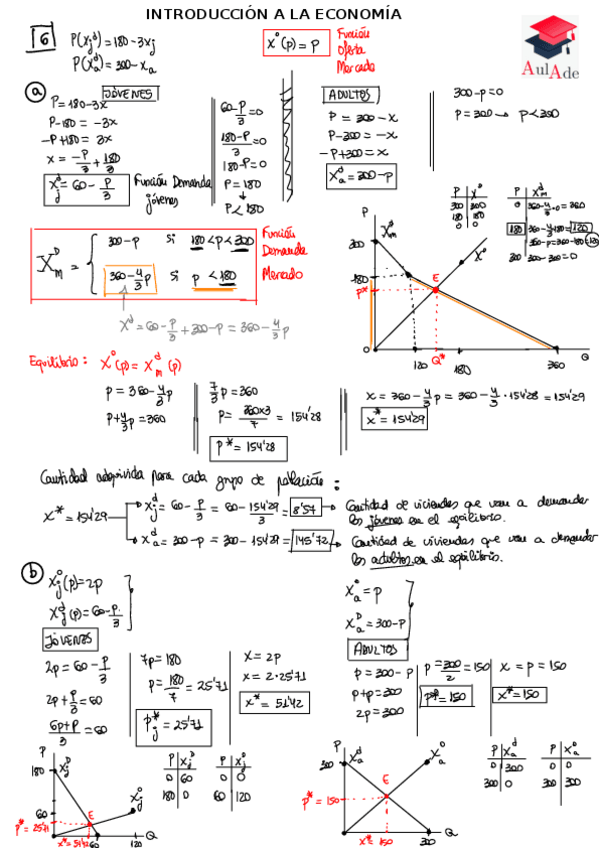 INTRODUCCIÓN A LA ECONOMÍA
6
P(xjᵈ) = 180 - 3xj
P(xaᵈ) = 300 - xa
x°(p) = P
Función
Oferta
Mercado
AulAde
a
JÓVENES
P = 180 - 3x
P - 180 = -3x
-P + 180 = 3x
x = -P/3 + 180/3
xjᵈ = 60 - P/3
Función Demanda
jóvenes
60 - P/3 = 0
180 - P/3 = 0
180 - P = 0
P = 180
P < 180
ADULTOS
P = 300 - x
P - 300 = -x
-P + 300 = x
xaᵈ = 300 - P
300 - P = 0
P = 300 → P < 300
XmD = { 300 - P si 180 < P < 300
360 - 4/3 P si P < 180
Función
Demanda
Mercado
Xᵈ = 60 - P/3 + 300 - P = 360 - 4/3 P
P x°
300 300
180 180
0 0
P xmᵈ
0 360 - 4/3·0 = 360
180 360 - 4/3·180 = 120
360 - P = 360 - 180 = 120
300 300 - 300 = 0
P
300
Xmᵈ
X°
180
P*
E
0
120
Q*
180
360
Q
Equilibrio: X°(p) = Xmᵈ(p)
P = 360 - 4/3 P
P + 4/3 P = 360
7/3 P = 360
P = 360x3/7 = 154'28
P* = 154'28
x = 360 - 4/3 P = 360 - 4/3 · 154'28 = 154'29
x* = 154'29
Cantidad adquirida para cada grupo de población:
x* = 154'29
xjᵈ = 60 - P/3 = 60 - 154'29/3 = 8'57 → Cantidad de viviendas que van a demandar
los jóvenes en el equilibrio.
xaᵈ = 300 - P = 300 - 154'29 = 145'72 → Cantidad de viviendas que van a demandar
los adultos en el equilibrio.
b
xj°(p) = 2p
xjᵈ(p) = 60 - P/3
JÓVENES
2p = 60 - P/3
2p + P/3 = 60
6p + P/3 = 60
7p = 180
P = 180/7 = 25'71
Pj* = 25'71
x = 2p
x = 2·25'71
x* = 51'42
xa° = P
xaD = 300 - P
ADULTOS
P = 300 - P
P + P = 300
2P = 300
P = 300/2 = 150
P* = 150
x = P = 150
x* = 150
P
180
XjD
60
P* = 25'71
E
Xj°
0
x* = 51'42
60
120
Q
P XjD
0 60
180 0
P Xj°
0 0
60 120
P
300
Xaᵈ
Xa°
E
P* = 150
0
x* = 150
300
Q
P Xaᵈ
0 300
300 0
P Xa°
0 0
300 300